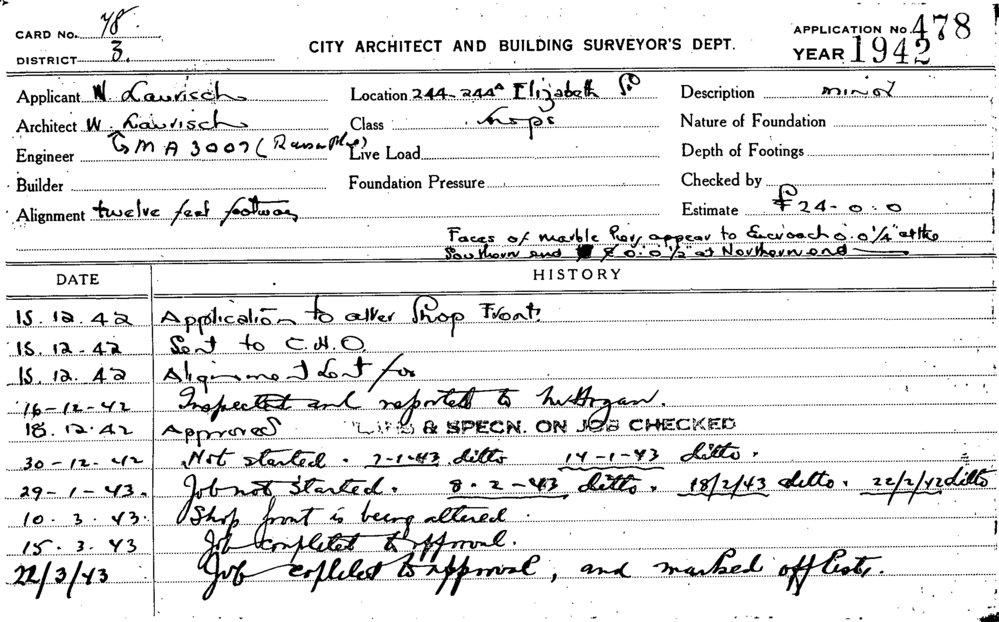 CARD No. 78
DISTRICT 3.
CITY ARCHITECT AND BUILDING SURVEYOR'S DEPT.
APPLICATION No. 478
YEAR 1942
Applicant W. Laurisch Location 244-244A Elizabeth St Description minor
Architect W. Laurisch Class shops Nature of Foundation
Engineer M A 3007 ( Live Load Depth of Footings
Builder Foundation Pressure Checked by
Alignment twelve feet footway Estimate £24-0.0
Faces of marble Piers appear to Encroach 0.0¼" at the
Southern end & 0.0½" at Northern end
DATE HISTORY
15.12.42 Application to alter Shop Front.
15.12.42 Sent to C.H.O
15.12.42 Alignment Sent for
16-12-42 Inspected and reported to Mr Hogan.
18.12.42 Approved PLANS & SPECN. ON JOB CHECKED
30-12-42 Not started. 7-1-43 ditto 14-1-43 ditto.
29-1-43. Job not started. 8.2-43 ditto. 18/2/43 ditto. 22/2/42 ditto
10.3.43. Shop front is being altered.
15.3.43 Job completed to approval.
22/3/43 Job completed to approval, and marked off list.